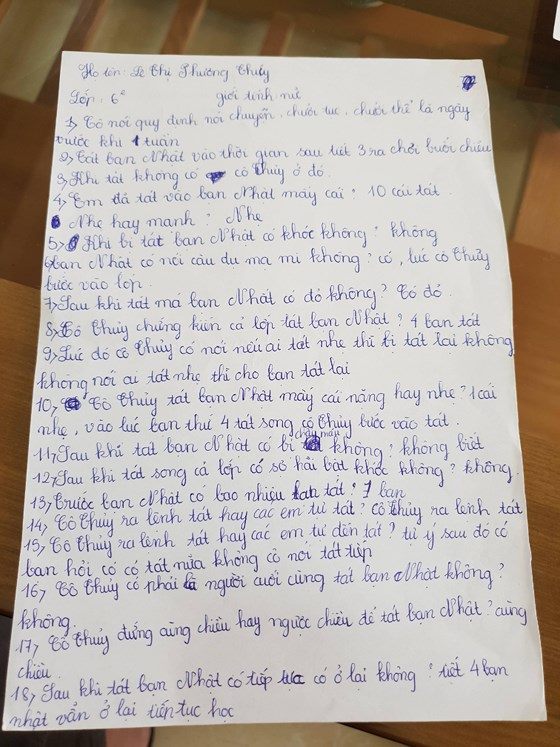 Họ tên: Lê Thị Phương Thúy
Lớp: 6e giới tính nữ
1, Cô nói quy định nói chuyện, chửi tục, chửi thề là ngày
trước khi 1 tuần
2, Tát bạn Nhật vào thời gian sau tiết 3 ra chơi buổi chiều
3, Khi tát không có cô Thủy ở đó.
4, Em đã tát vào bạn Nhật mấy cái? 10 cái tát.
Nhẹ hay mạnh? Nhẹ
5, Khi bị tát bạn Nhật có khóc không? không
6, bạn Nhật có nói câu đu ma mi không? có, lúc cô Thủy
bước vào lớp.
7, Sau khi tát má bạn Nhật có đỏ không? Có đỏ.
8, Cô Thủy chứng kiến cả lớp tát bạn Nhật? 4 bạn tát
9, Lúc đó cô Thủy có nói nếu ai tát nhẹ thì bị tát lại không
không nói ai tát nhẹ thì cho bạn tát lại
10, Cô Thủy tát bạn Nhật mấy cái nặng hay nhẹ? 1 cái
nhẹ, vào lúc bạn thứ 4 tát song cô Thủy bước vào tát.
11, Sau khi tát bạn Nhật có bị chảy máu không? không biết
12, Sau khi tát song cả lớp có sợ hãi bật khóc không? không.
13, Trước bạn Nhật có bao nhiêu bạn tát? 7 bạn
14, Cô Thủy ra lệnh tát hay các em tự tát? cô Thủy ra lệnh tát
15, Cô Thủy ra lệnh tát hay các em tự đến tát? tự ý sau đó có
bạn hỏi cô có tát nữa không cô nói tát tiếp
16, Cô Thủy có phải là người cuối cùng tát bạn Nhật không?
không.
17, Cô Thủy đứng cùng chiều hay ngược chiều để tát bạn Nhật? cùng
chiều.
18, Sau khi tát bạn Nhật có tiếp tục có ở lại không? tiết 4 bạn
nhật vẫn ở lại tiếp tục học